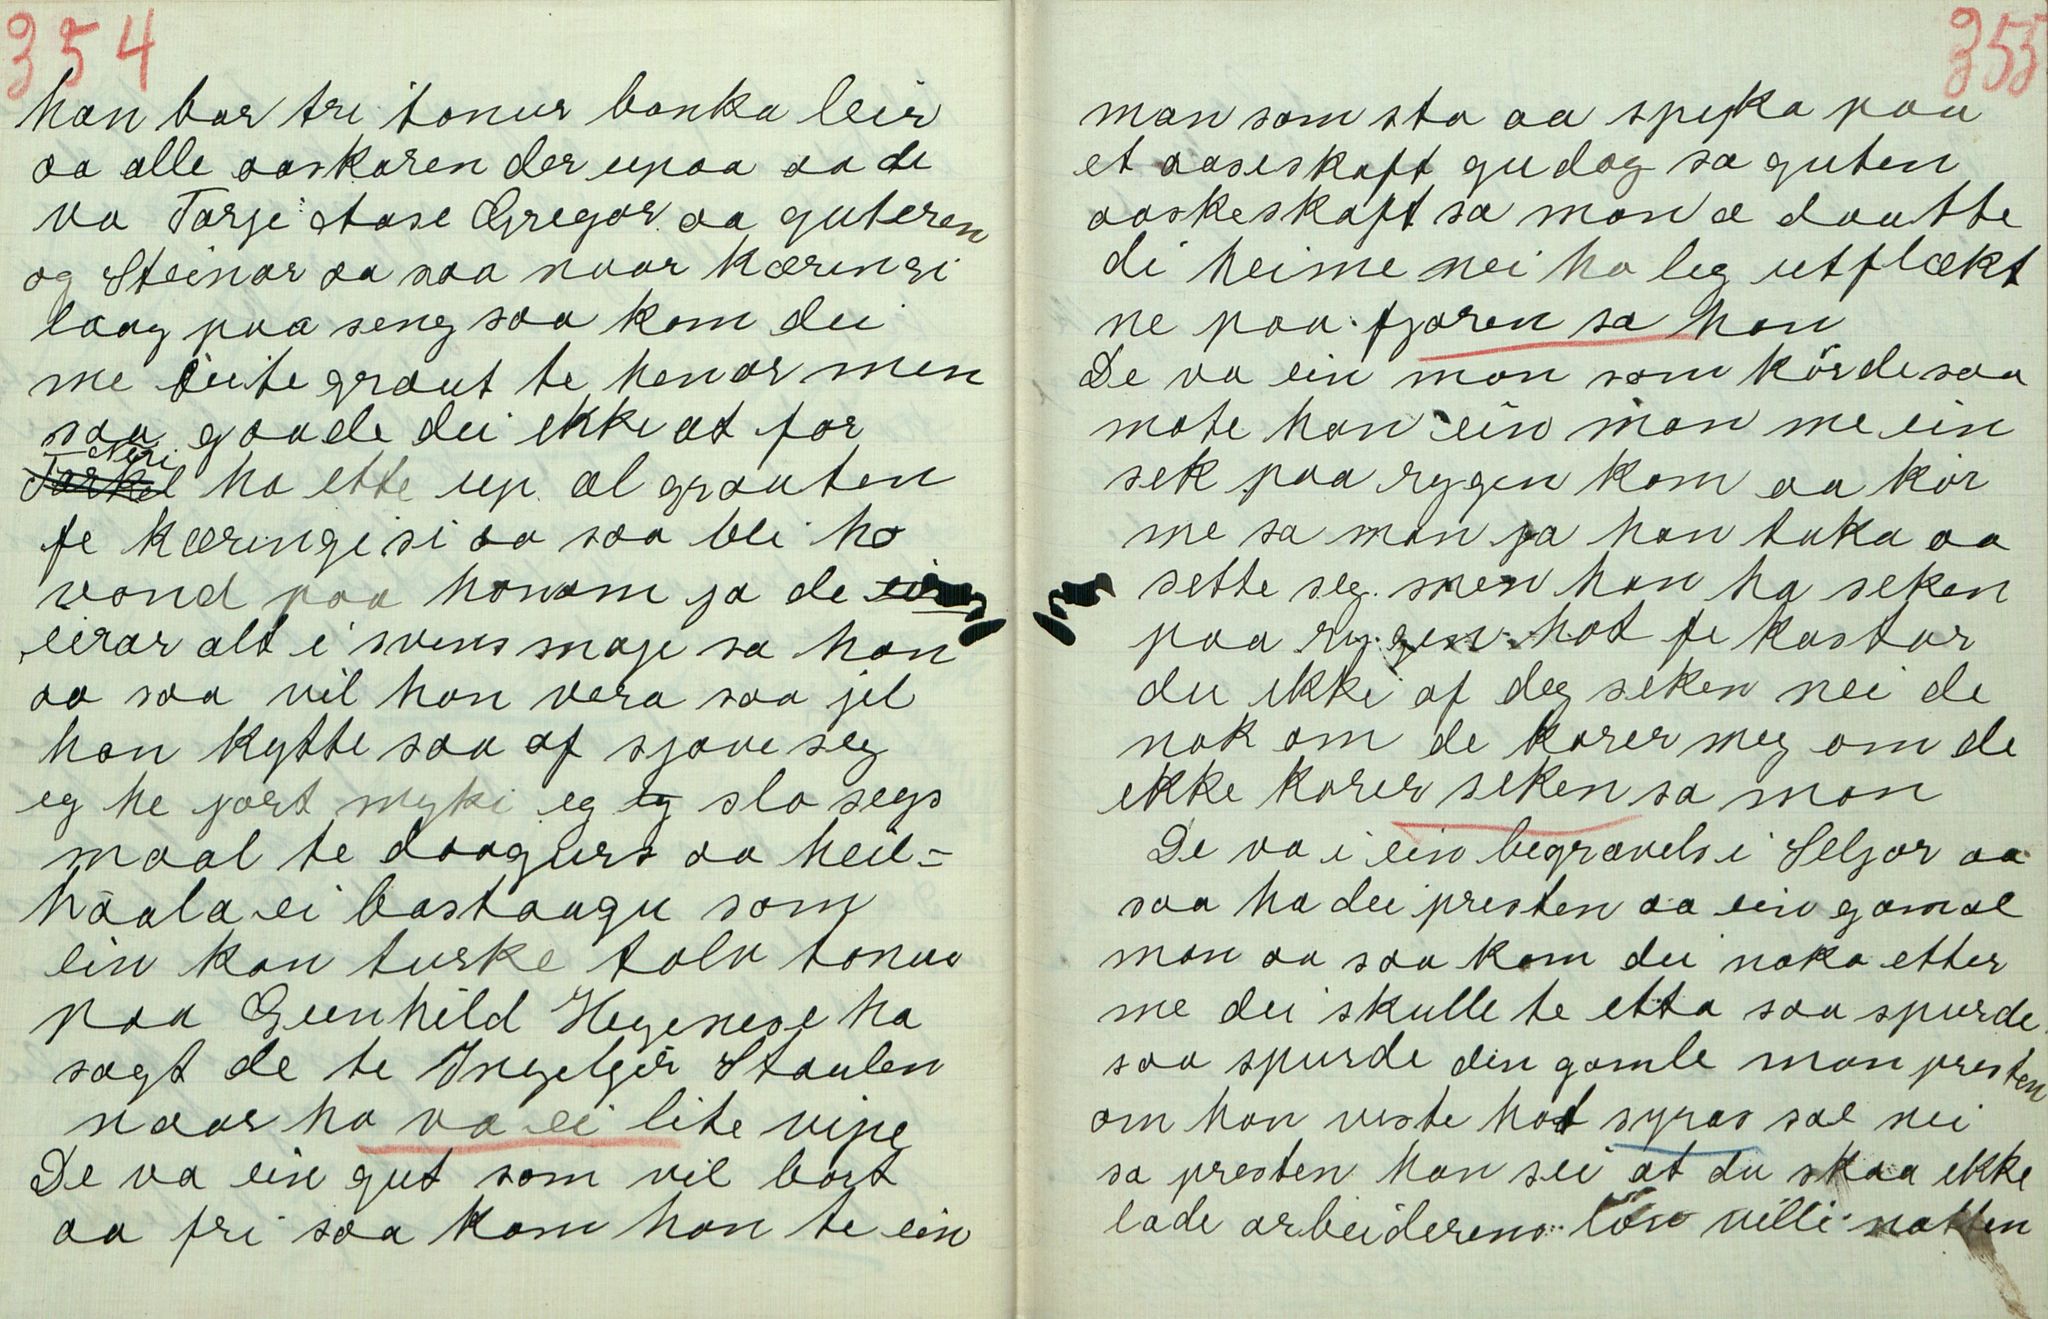 354
han bar tri tonur banka leir
aa alle aaskaren der upaa aa de
va Targi Aase Gregar aa guteren
og Steinar aa saa naar kæringi
laag paa seng saa kom dei
me graut te henar men
saa gaade dei ikke at for
Neri
Tarkel ha ette up al grauten
fe kæringi si aa saa blei ho
vond paa honom ja de
eirar alt i svens maje sa han
aa saa vil han vera saa jel
han kytte saa af sjave seg
eg he jort myki eg eg slo segs
maal te daagurs aa heil-
haala ei bastaagu som
ein kan turke tolv tonur
paa Gunhild Hegenese ha
sagt de te Ingelgjer Staulen
naar ho va ei lite vipe
De va ein gut som vil bort
aa fri saa kom han te ein
355
man som sto aa spikka paa
et aaseskaft gudag sa guten
aaskeskaft sa man æ daatte
di heime nei ho leg utflækt
ne paa fjoren sa han
De va ein man som körde saa
møte han ein man me ein
sek paa rygen kom aa kör
me sa man ja han taka aa
sette seg men han ha seken
paa rygen hot fe kastar
du ikki af deg seken nei de
nok om de körer meg om de
ikke körer seken sa man
De va i ein begravels i Seljor aa
saa ha dei presten aa ein gamal
man aa saa kom dei noko etter
me dei skulle te etta saa spurde
saa spurde den gamle man presten
om han viste hot syras sal nei
sa presten han sei at du skaa ikke
lade arbeiderens løn villi natten